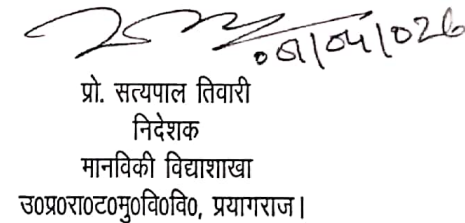 प्रो. सत्यपाल तिवारी
निदेशक
मानविकी विद्याशाखा
उ०प्र०रा०ट०मु०वि०वि०, प्रयागराज।